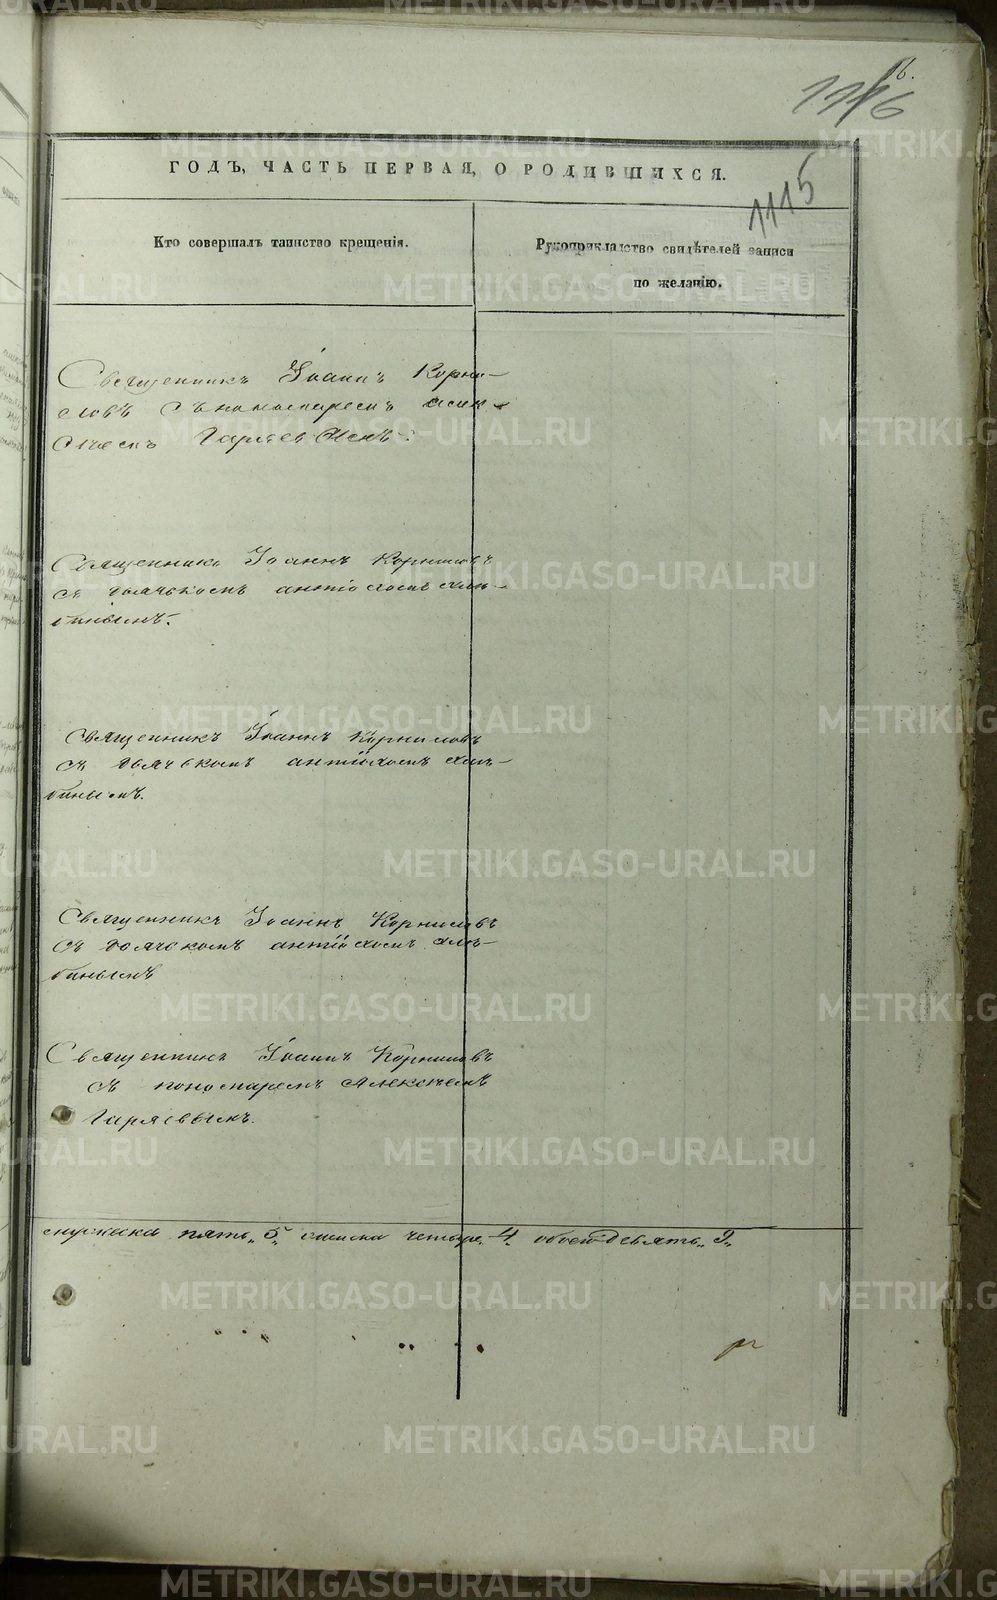 16.
1116
1115
ГОДЪ, ЧАСТЬ ПЕРВАЯ, О РОДИВШИХСЯ.
Кто совершалъ таинство крещенія.
Рукоприкладство свидѣтелей записи
по желанію.
Священникъ Іоаннъ Корни-
ловъ съ пономаремъ Алек-
сѣемъ
Священникъ Іоаннъ Корниловъ
съ дьячькомъ антіохомъ хля-
биньімъ.
Священникъ Іоаннъ Корниловъ
съ дьячькомъ антіохомъ хля-
биньімъ.
Священникъ Іоаннъ Корниловъ
съ дьячкомъ антіохомъ хля-
биньімъ
Священникъ Іоаннъ Корниловъ
съ пономаремъ Алексѣемъ
Гаряевымъ.
мужеска пять „5„ женска четыре „4„ обоего девять „9„
METRIKI.GASO-URAL.RU